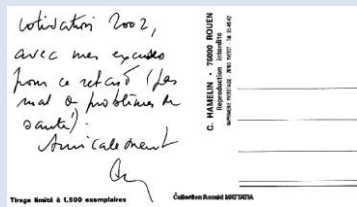 Cotisation 2002,
avec mes excuses
pour ce retard (pas
mal de problèmes de
santé).
Amicalement
C. HAMELIN - 76000 ROUEN
Reproduction interdite
Tirage limité à 1.500 exemplaires
Collection Ronald MATTATIA